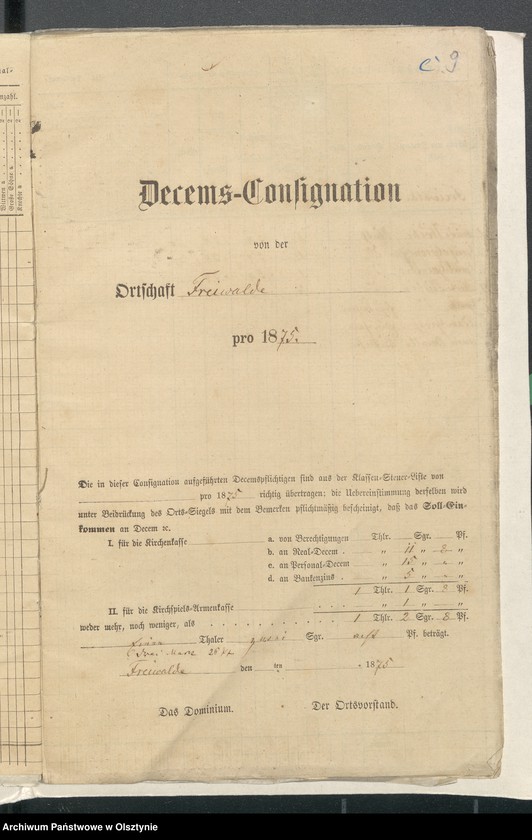 c. 9
Decems-Consignation
von der
Ortschaft Freiwalde
pro 1875.
Die in dieser Consignation aufgeführten Decemspflichtigen sind aus der Klassen-Steuer-Liste von
pro 1875 richtig übertragen; die Uebereinstimmung derselben wird
unter Beidrückung des Orts-Siegels mit dem Bemerken pflichtmäßig bescheinigt, daß das Soll-Ein-
kommen an Decem ꝛc.
I. für die Kirchenkasse a. von Berechtigungen Thlr. Sgr. Pf.
b. an Real-Decem . „ 11 „ 8 „
c. an Personal-Decem „ 15 „ - „
d. an Bankenzins . „ 5 „ - „
1 Thlr. 1 Sgr. 8 Pf.
II. für die Kirchspiels-Armenkasse . . . „ 1 „ „
weder mehr, noch weniger, als . . . 1 Thlr. 2 Sgr. 8 Pf.
Einen Thaler zwei Sgr. acht Pf. beträgt.
Drei Mark
Freiwalde den ten 1875
Das Dominium. Der Ortsvorstand.
Archiwum Państwowe w Olsztynie